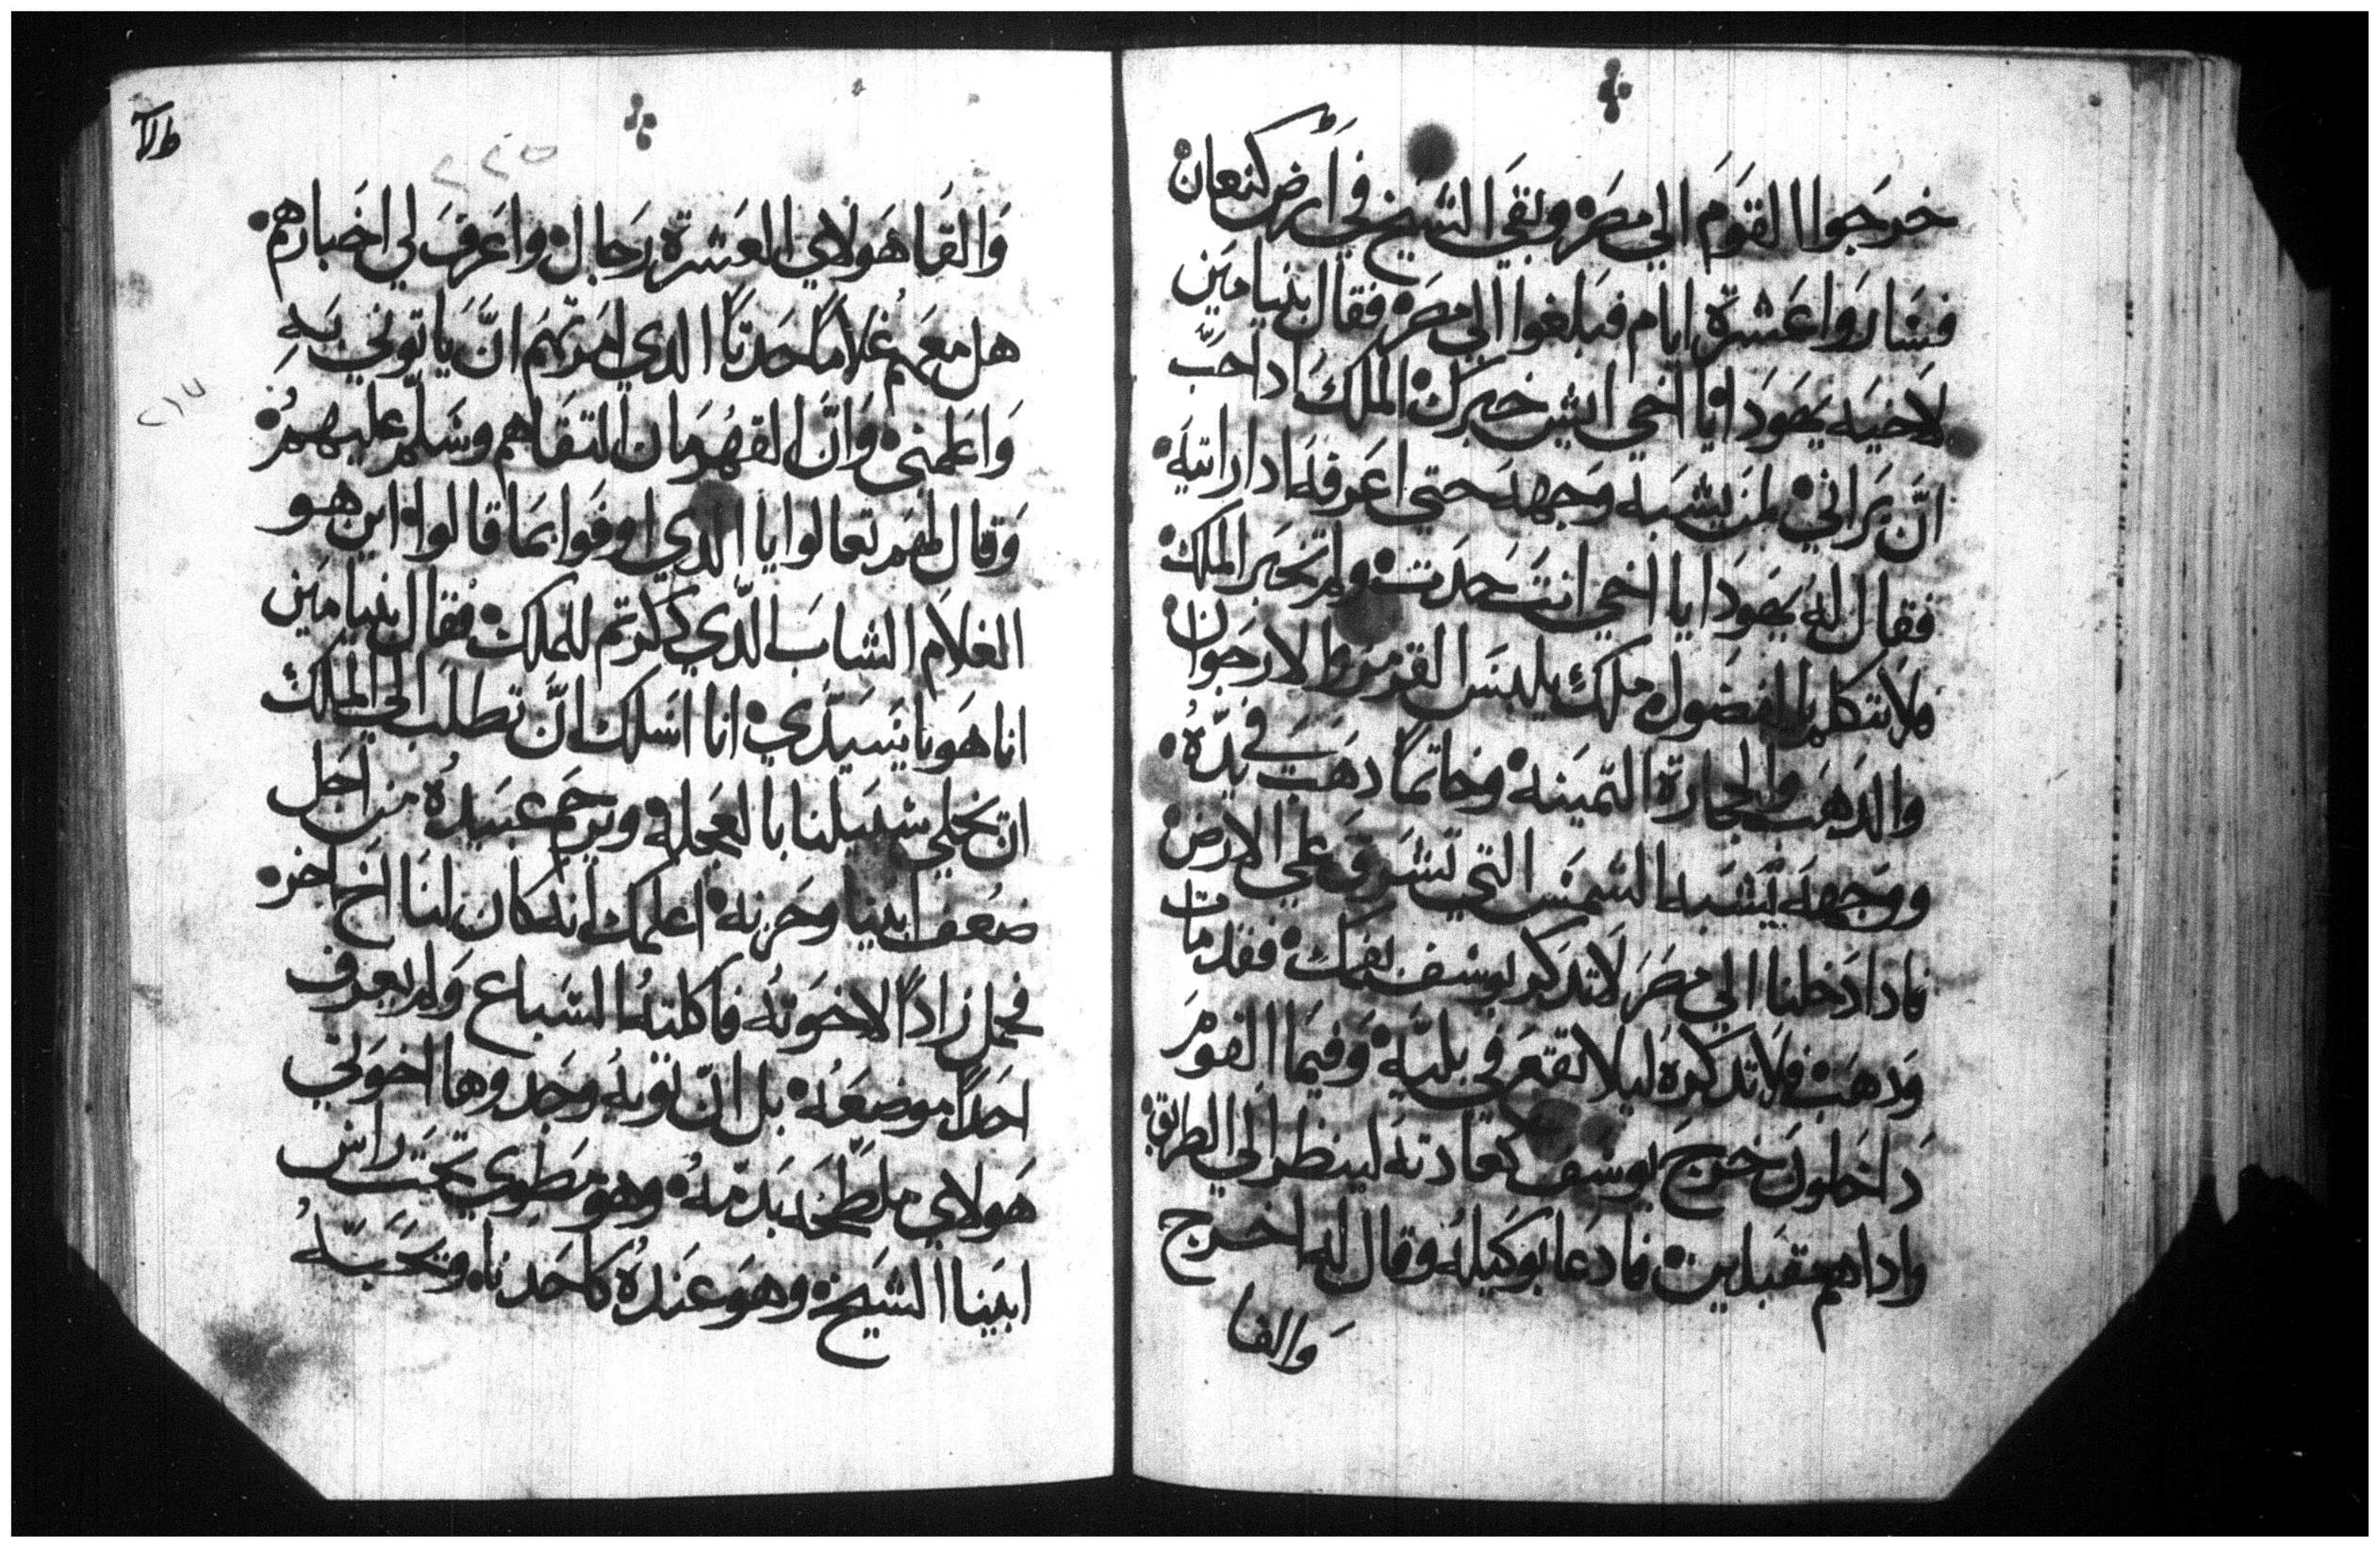 خرجوا القوم الي مصر وبقي الشيخ في ارض كنعان
فساروا عشرة ايام فبلغوا الي مصر فقال بنيامين
لاخيه يهودا يا اخي ايش خبرك الملك ادا حب
ان يراني لمن يشبه وجهه حتي اعرفه ادا رايته
فقال له يهودا يا اخي انت حدت ولم تخبر الملك
فلا تتكلم بالفضول ملك يلبس القرمز والارجوان
والدهب والحجارة التمينه وخاتما دهب في يده
ووجهه يشبه الشمس التي تشرق علي الارض
فادا دخلنا الي مصر لا تدكر يوسف بفمك فقد مات
ودهب فلا تدكره ليلا نقع في بليه وفيما القوم
داخلون خرج يوسف كعادته لينظر الي الطريق
وادا هم مقبلين فادعا بوكيله وقال له اخرج
والقا
والقا هولاي العشرة رجال واعرف لي اخبارهم
هل معهم غلاما حدتا الدي امرتهم ان ياتوني به
واعلمني وان القهرمان التقاهم وسلم عليهم
وقال لهم تعالوا يا الدي اوفوا بما قالوا اين هو
الغلام الشاب الدي دكرتم للملك فقال بنيامين
انا هو يا سيدي انا اسلك ان تطلب الي الملك
ان يخلي سبيلنا بالعجله ويرحم عبيده من اجل
ضعف ابينا وحزنه اعلمك انه كان لنا اخ اخر
فحمل زادا لاخوته فاكلته السباع ولم يعرف
احدا موضعه بل ان توبه وجدوها اخوتي
هولاي ملطخه بدمه وهو مطوي تحت راس
ابينا الشيخ وهو عنده كاحدنا ويحبه